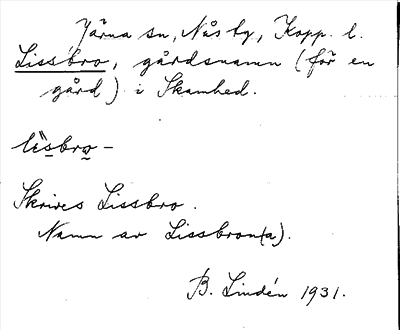 Järna sn, Nås tg, Kopp. l.
Lissbro, gårdsnamn (för en
gård) i Skamhed.
Skrives Lissbro.
Namn av Lissbron(a).
B. Lindén 1931.